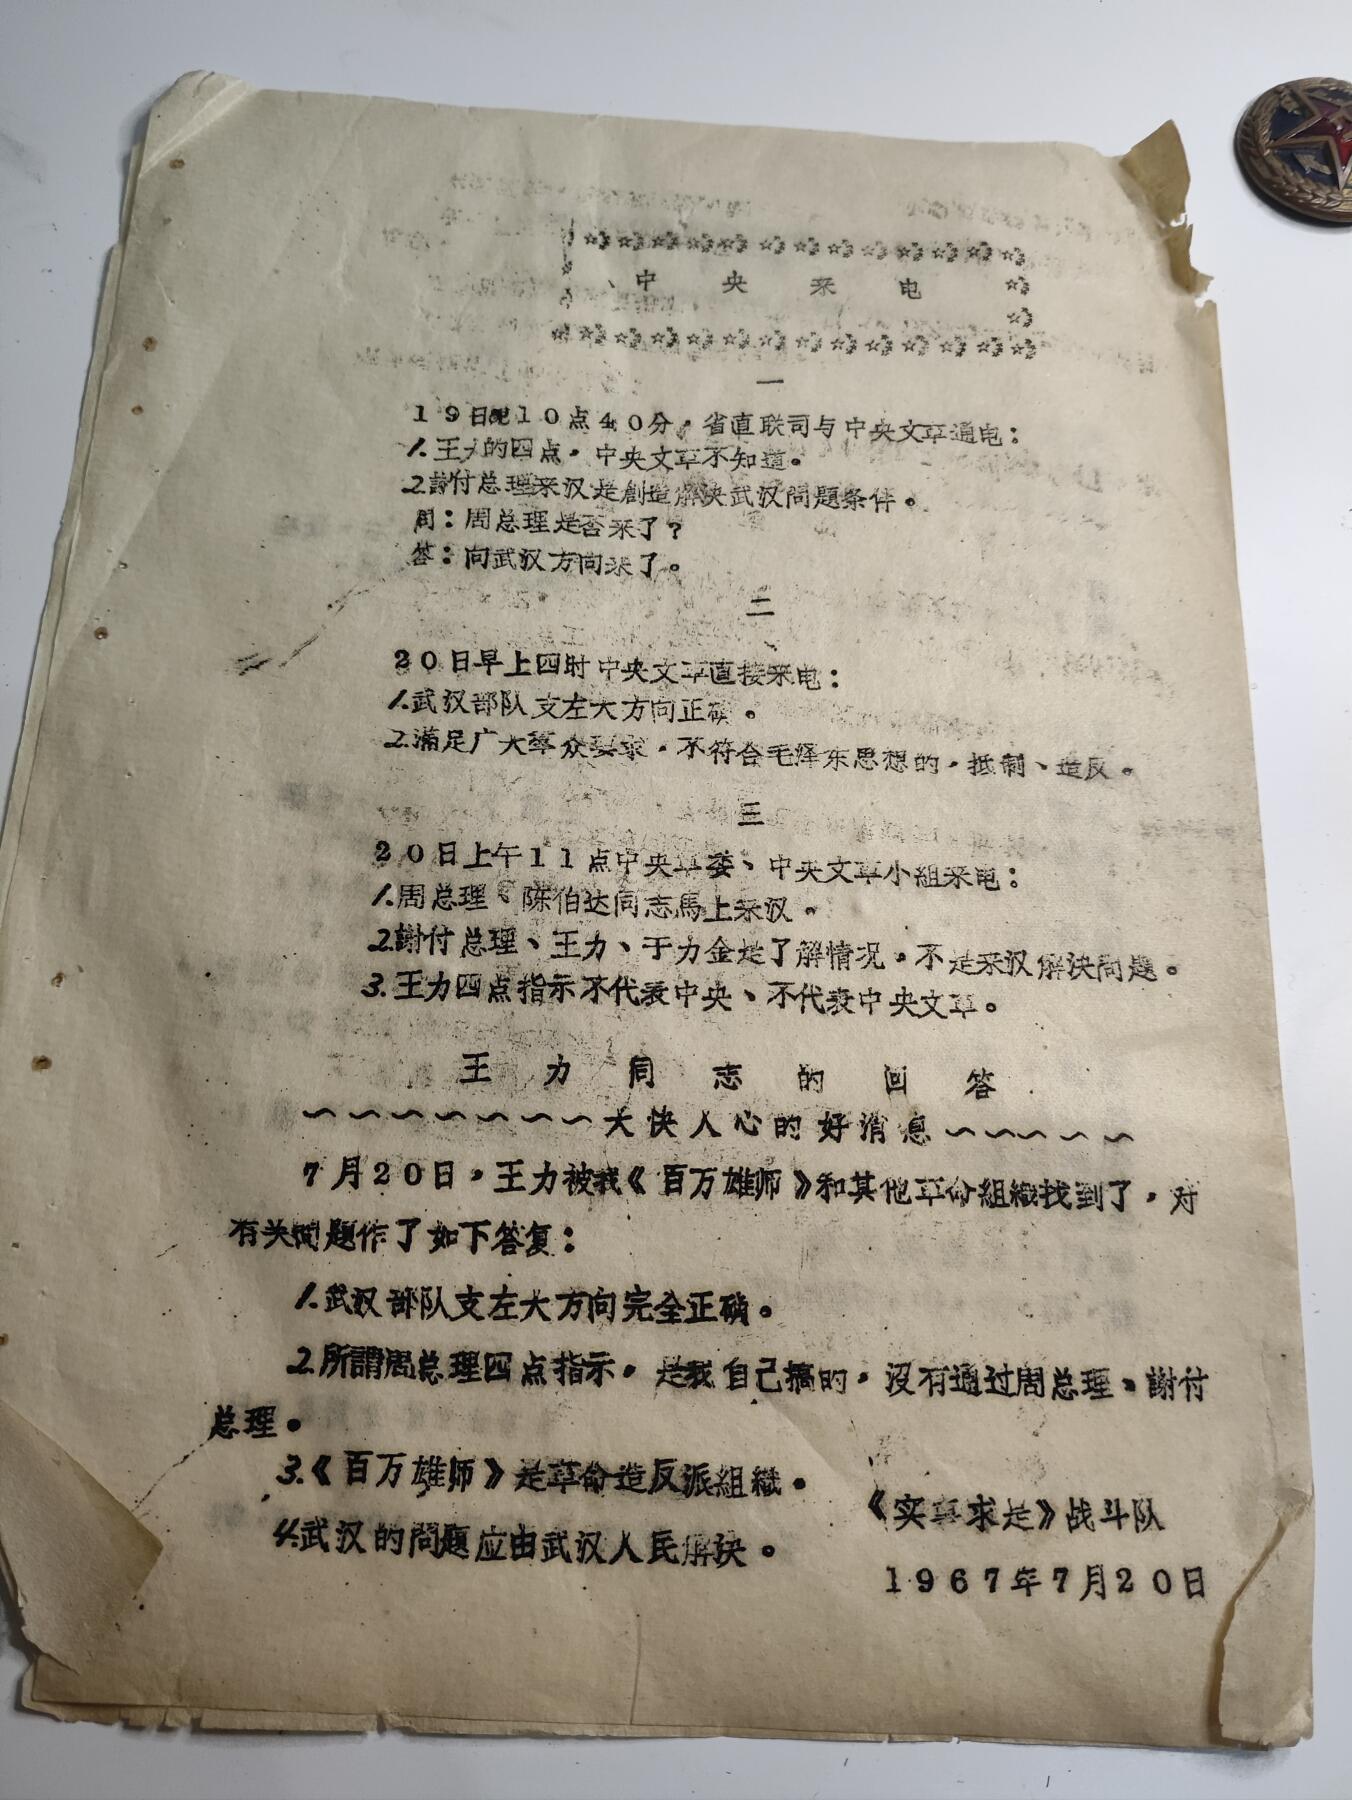 中央来电
一
19日晚10点40分，省直联司与中央文革通电：
1.王力的四点，中央文革不知道。
2.謝付总理来汉是創造解决武汉問題条件。
問：周总理是否来了？
答：向武汉方向来了。
二
20日早上四时中央文革直接来电：
1.武汉部队支左大方向正确。
2.滿足广大羣众要求，不符合毛泽东思想的，抵制、造反。
三
20日上午11点中央革委、中央文革小組来电：
1.周总理、陈伯达同志馬上来汉。
2.謝付总理、王力、于力金是了解情况，不是来汉解决問題。
3.王力四点指示不代表中央、不代表中央文革。
王力同志的回答
～～～～～～～大快人心的好消息～～～～～
7月20日，王力被我《百万雄师》和其他革命組織找到了，对
有关問題作了如下答复：
1.武汉部队支左大方向完全正确。
2.所謂周总理四点指示，是我自己搞的，没有通过周总理、謝付
总理。
3.《百万雄师》是革命造反派組織。
4.武汉的問題应由武汉人民解决。
《实事求是》战斗队
1967年7月20日